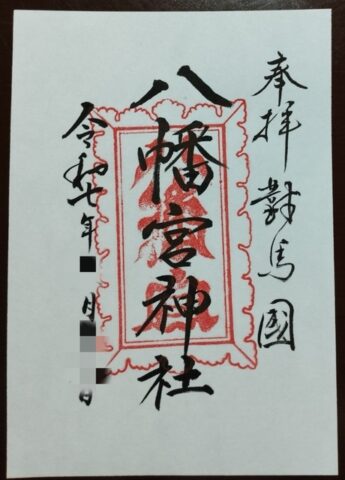 奉拝 對馬國
八幡宮神社
令和七年 月 日